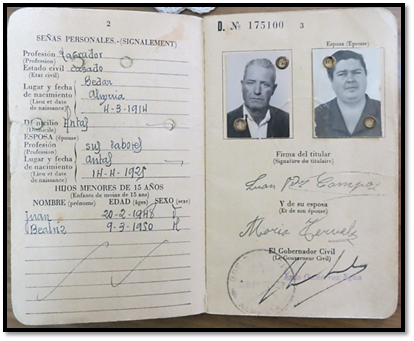 2
SEÑAS PERSONALES.-(SIGNALEMENT)
Profesión Labrador
(Profession)
Estado civil Casado
(Etat civil)
Bedar
Lugar y fecha
de nacimiento Almeria
(Lieu et date
de naissance) 4-3-1914
Domicilio Antas
(Domicile)
ESPOSA (épouse)
Profesión sus labores
(Profession)
Lugar y fecha Antas
de nacimiento
(Lieu et date
de naissance) 14-11-1925
HIJOS MENORES DE 15 AÑOS
(Enfants de moins de 15 ans)
NOMBRE (prénome) EDAD (âge) SEXO (sexe)
Juan 20-2-1948 V
Beatriz 9-3-1950 H
D. Nº 175100 3
Esposa (Épouse)
Firma del titular
(Signature du titulaire)
Juan Campo
Y de su esposa
(Et de son épouse)
Maria
El Gobernador Civil
(Le Gouverneur Civil)